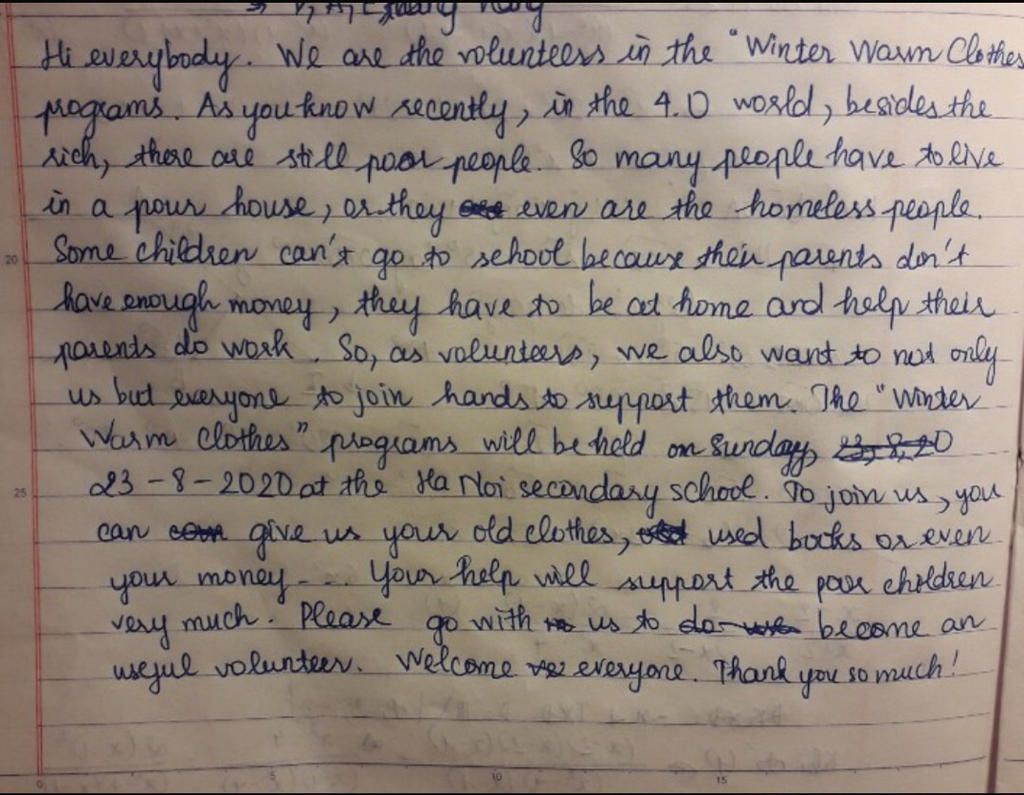 Hi everybody. We are the volunteers in the "Winter Warm Clothes
programs. As you know recently, in the 4.0 world, besides the
rich, there are still poor people. So many people have to live
in a pour house, or they even are the homeless people.
Some children can't go to school because their parents don't
have enough money, they have to be at home and help their
parents do work. So, as volunteers, we also want to not only
us but everyone to join hands to support them. The "Winter
Warm Clothes" programs will be held on Sunday, 23-8-20
23-8-2020 at the Ha Noi secondary school. To join us, you
can give us your old clothes, used books or even
your money... Your help will support the poor children
very much. Please go with us to become an
useful volunteer. Welcome everyone. Thank you so much!
20
25
0 5 10 15